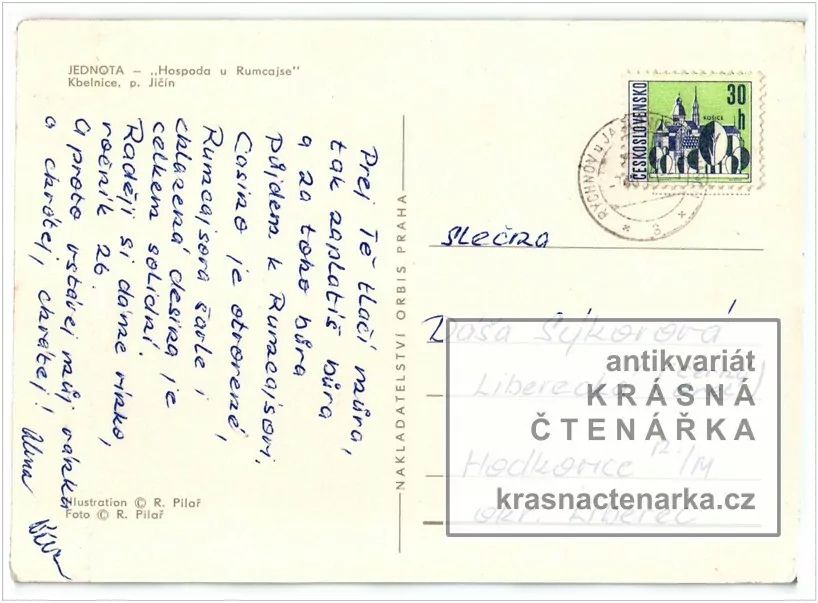 JEDNOTA — „Hospoda u Rumcajse"
Kbelnice, p. Jičín
Prej Tě tlačí můra,
tak zaplatíš bůra
a za toho bůra
půjdem k Rumcajsovi.
Casino je otvorené,
Rumcajsova šavle i
chlazená desina je
celkem solidní.
Raději si dáme rizko,
ročník 26.
A proto vstávej můj
a chvátej, chvátej! Alena
Illustration © R. Pilař
Foto © R. Pilař
NAKLADATELSTVÍ ORBIS PRAHA
ČESKOSLOVENSKO
30 h
KOŠICE
RYCHNOV u JA
slečna
Dáša Sýkorová
Liberecká
Hodkovice /M
okr. Liberec
antikvariát
KRÁSNÁ
ČTENÁŘKA
krasnactenarka.cz